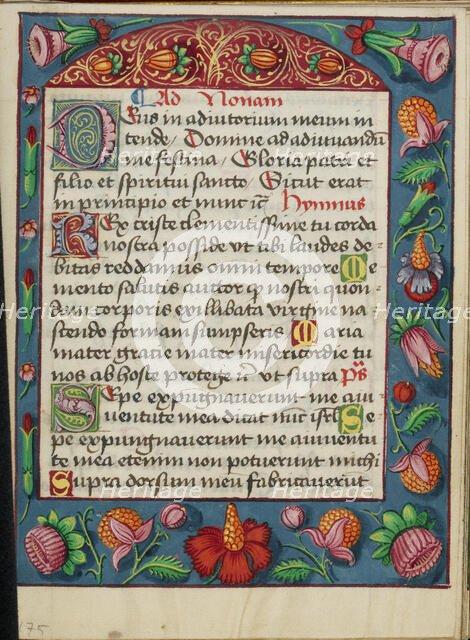 Ad Nonam
Deus in adiutorium meum in
tende / Domine ad adiuuandū
me festina / Gloria patri et
filio et spiritui sancto / Sicut erat
in principio et nunc ⁊c Hymnus
Rex criste clementissime tu corda
nostra posside vt tibi laudes de-
bitas reddamus omni tempore Me
mento salutis auctor q nostri quon
dam corporis ex illibata virgine na
scendo formam sumpseris Maria
mater gracie mater misericordie tu
nos ab hoste protege vt supra ps
Sepe expugnauerunt me a iu
uentute mea dicat nūc isrl Se
pe expungnauerunt me a iuuentu
te mea etenim non potuerunt michi
Supra dorsum meū fabricauerūt
175
Heritage